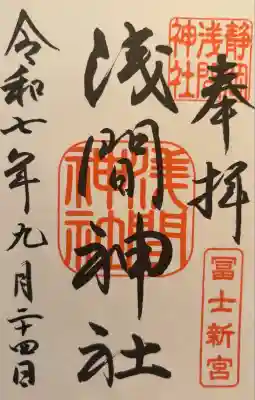 奉拝
静岡浅間神社
冨士新宮
浅間神社
淺間神社
令和七年九月二十四日